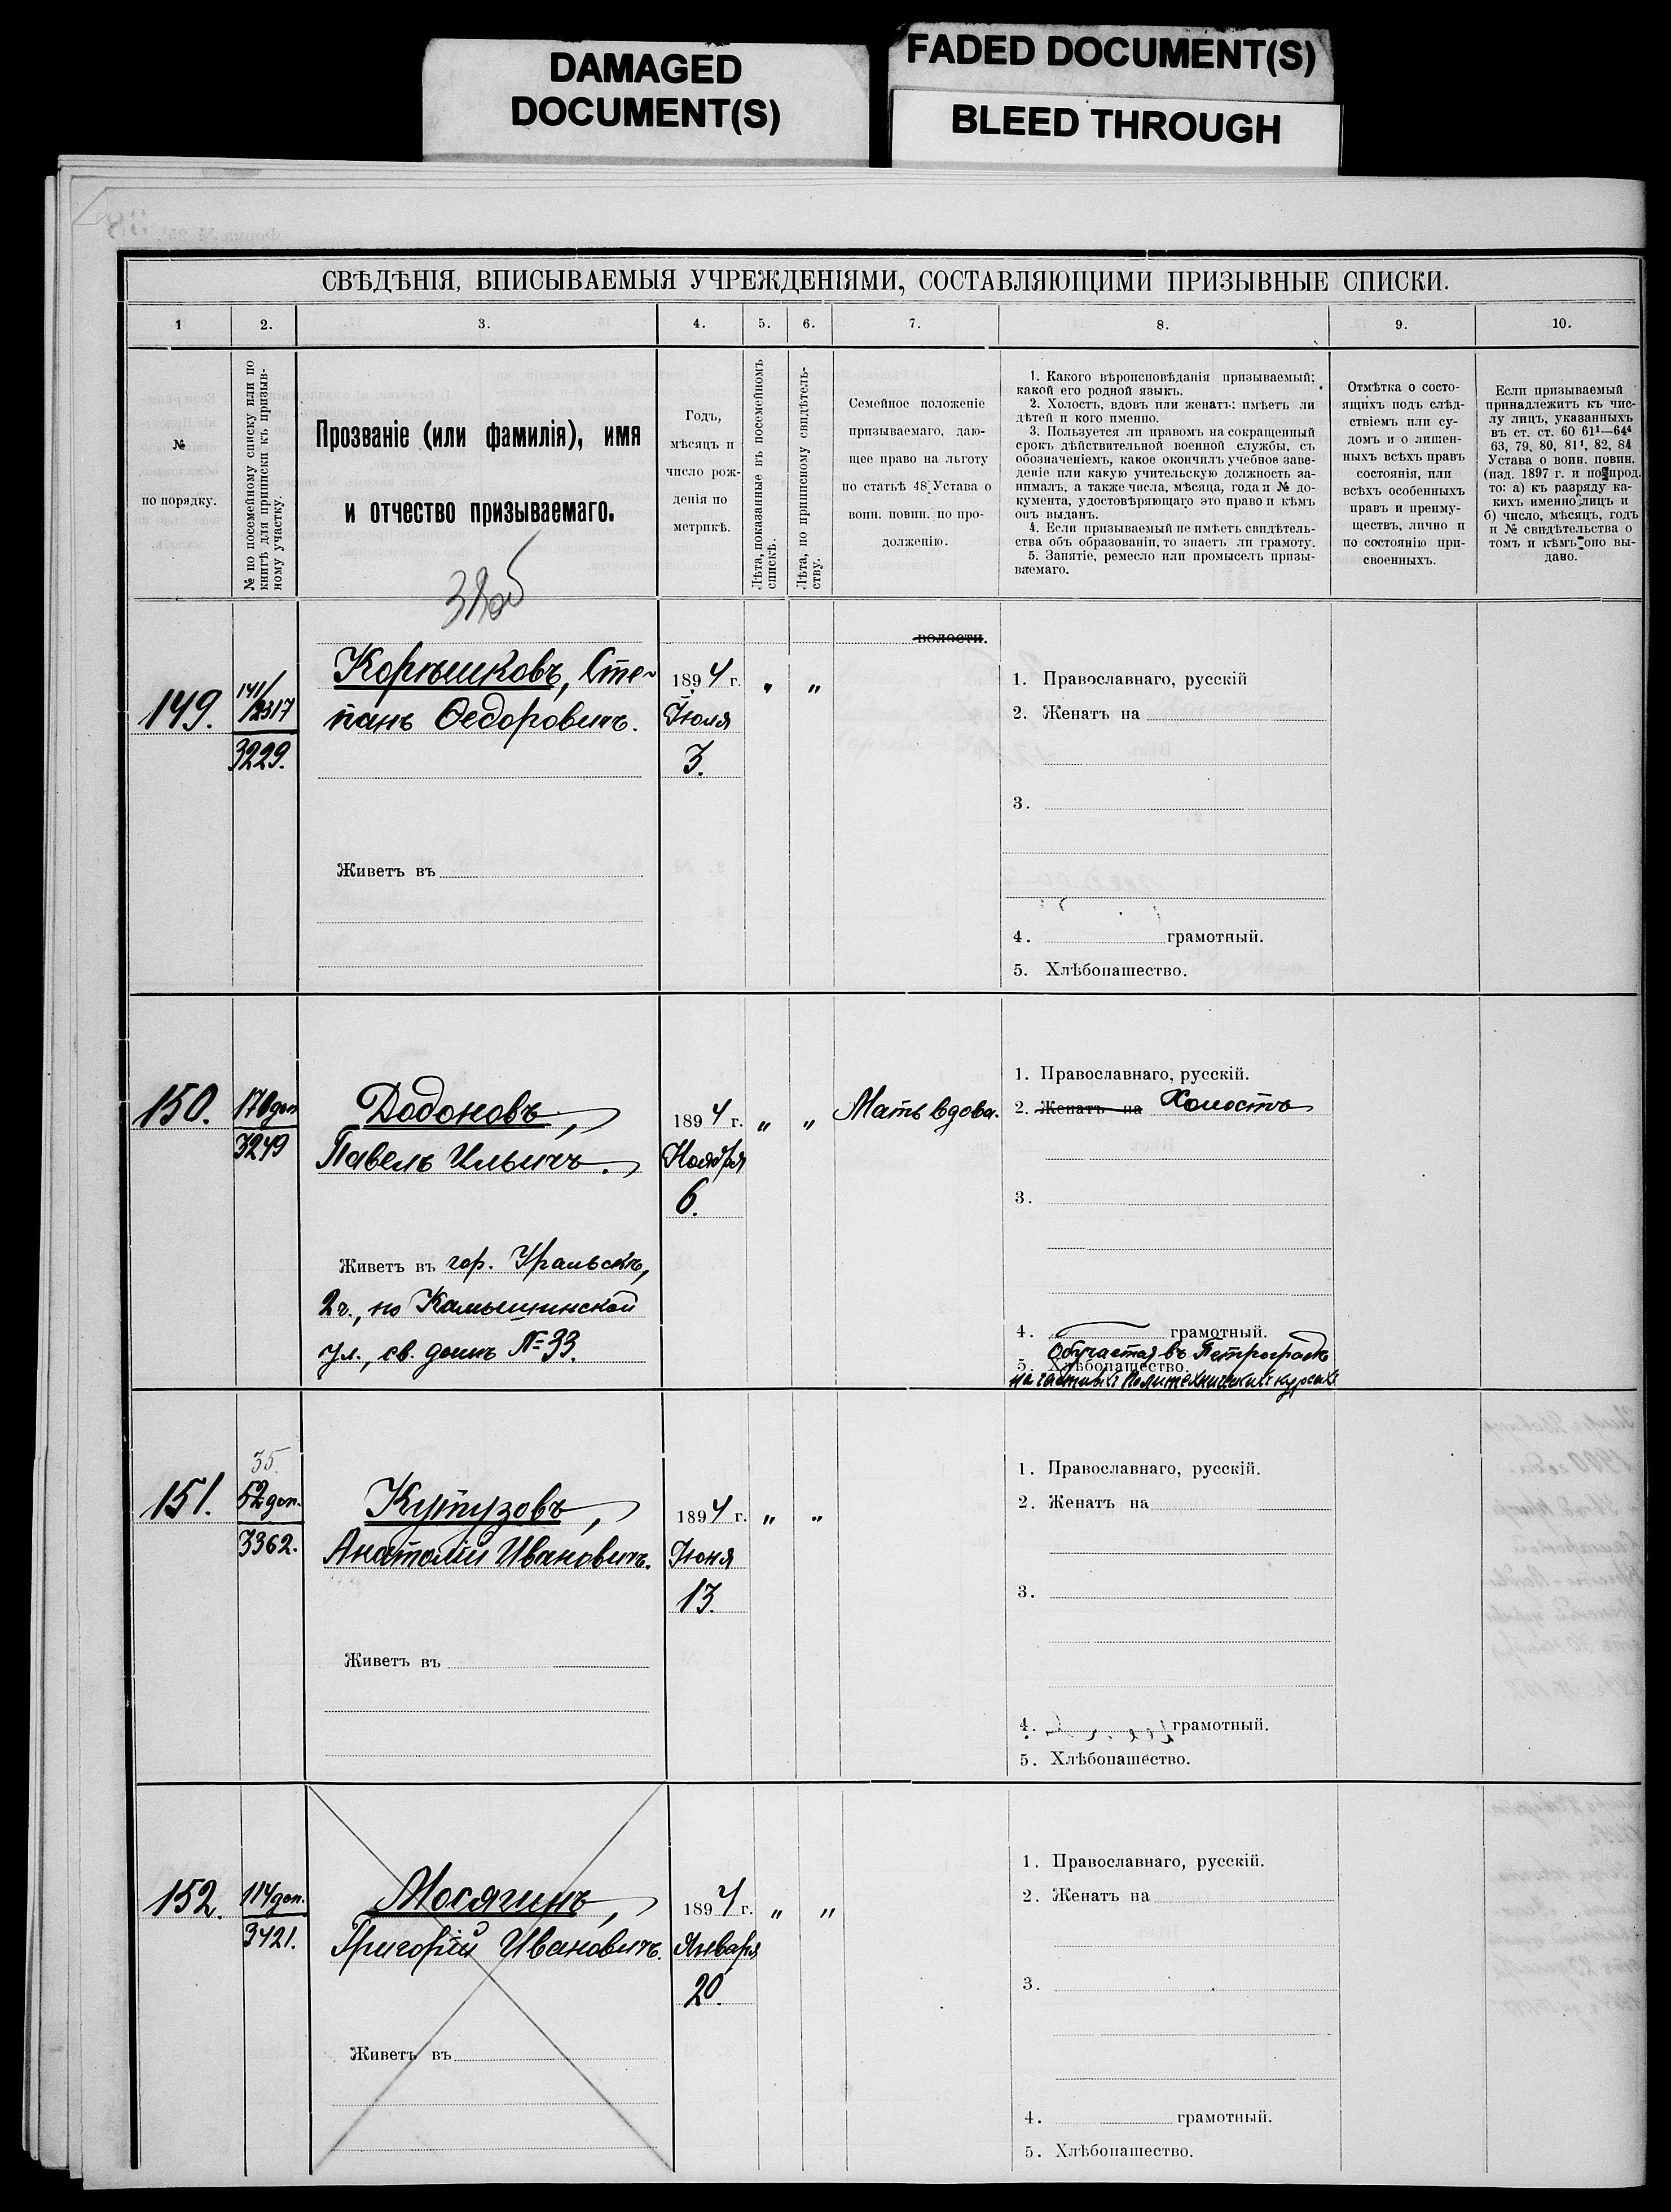 DAMAGED
DOCUMENT(S)
FADED DOCUMENT(S)
BLEED THROUGH
СВѢДѢНІЯ, ВПИСЫВАЕМЫЯ УЧРЕЖДЕНІЯМИ, СОСТАВЛЯЮЩИМИ ПРИЗЫВНЫЕ СПИСКИ.
1
2.
3.
4.
5.
6.
7.
8.
9.
10.
№
по порядку.
№ по посемейному списку или по
книгѣ для приписки къ призыв-
ному участку.
Прозваніе (или фамилія), имя
и отчество призываемаго.
Годъ,
мѣсяцъ и
число рож-
денія по
метрикѣ.
Лѣта, показанные въ посемейномъ
спискѣ.
Лѣта, по приписному свидѣтель-
ству.
Семейное положеніе
призываемаго, даю-
щее право на льготу
по статьѣ 48 Устава о
воин. повин. по про-
долженію.
1. Какого вѣроисповѣданія призываемый;
какой его родной языкъ.
2. Холостъ, вдовъ или женатъ; имѣетъ ли
дѣтей и кого именно.
3. Пользуется ли правомъ на сокращенный
срокъ дѣйствительной военной службы, съ
обозначеніемъ, какое окончилъ учебное заве-
деніе или какую учительскую должность за-
нималъ, а также числа, мѣсяца, года и № до-
кумента, удостовѣряющаго это право и кѣмъ
онъ выданъ.
4. Если призываемый не имѣетъ свидѣтель-
ства объ образованіи, то знаетъ ли грамоту.
5. Занятіе, ремесло или промыселъ призы-
ваемаго.
Отмѣтка о состо-
ящихъ подъ слѣд-
ствіемъ или су-
домъ и о лишен-
ныхъ всѣхъ правъ
состоянія, или
всѣхъ особенныхъ
правъ и преиму-
ществъ, лично и
по состоянію при-
своенныхъ.
Если призываемый
принадлежитъ къ чис-
лу лицъ, указанныхъ
въ ст. ст. 60 61¹—64⁴
63, 79, 80, 81¹, 82, 84
Устава о воин. повин.
(изд. 1897 г. и по прод.
то: а) къ разряду ка-
кихъ именно лицъ и
б) число, мѣсяцъ, годъ
и № свидѣтельства о
томъ и кѣмъ оно вы-
дано.
волости.
149.
141/2317
3229.
Корѣшковъ, Сте-
панъ Ѳедоровичъ.
1894 г.
Іюля
3.
„ „
Живетъ въ
1. Православнаго, русскій
2. Женатъ на
3.
4. грамотный.
5. Хлѣбопашество.
150.
170 доп
3249
Додоновъ,
Павелъ Ильичъ.
1894 г.
Ноября
6.
„ „
Мать вдова.
Живетъ въ гор. Уральскѣ,
2 ч., по Камышинской
ул., св. домъ № 33.
1. Православнаго, русскій.
2. Женатъ на Холостъ
3.
4. грамотный.
Обучается въ Петроградѣ
5. Хлѣбопашество.
на частныхъ Политехническихъ курсахъ
151.
35.
52 доп.
3362.
Кутузовъ,
Анатолій Ивановичъ.
1894 г.
Іюня
13.
„ „
Живетъ въ
1. Православнаго, русскій.
2. Женатъ на
3.
4. грамотный.
5. Хлѣбопашество.
152.
114 доп.
3421.
Мосягинъ,
Григорій Ивановичъ.
1894 г.
Января
20.
„ „
Живетъ въ
1. Православнаго, русскій.
2. Женатъ на
3.
4. грамотный.
5. Хлѣбопашество.